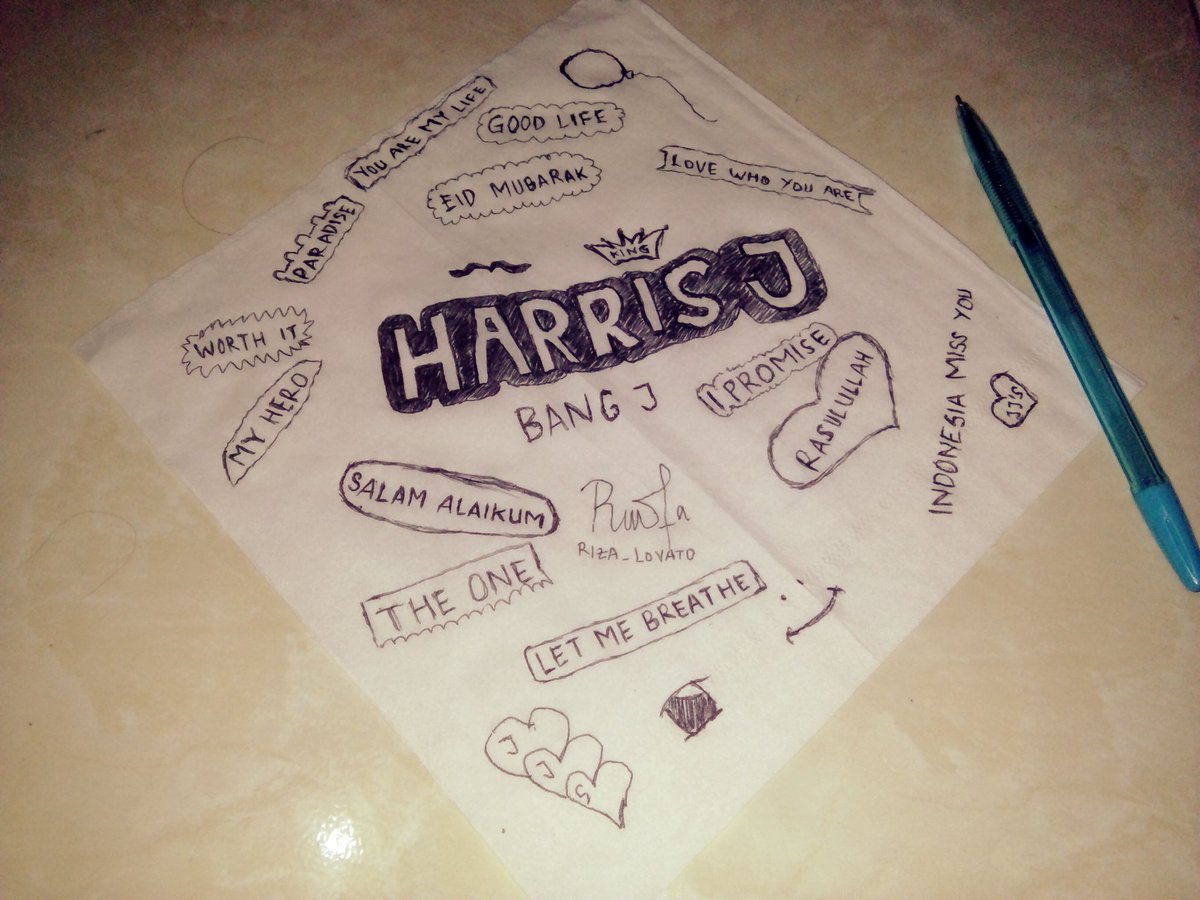 YOU ARE MY LIFE
GOOD LIFE
EID MUBARAK
LOVE WHO YOU ARE
PARADISE
KING
HARRIS J
BANG J
WORTH IT
MY HERO
I PROMISE
RASULULLAH
INDONESIA MISS YOU
JJ'S
SALAM ALAIKUM
RIZA_LOVATO
THE ONE
LET ME BREATHE
J
J
S